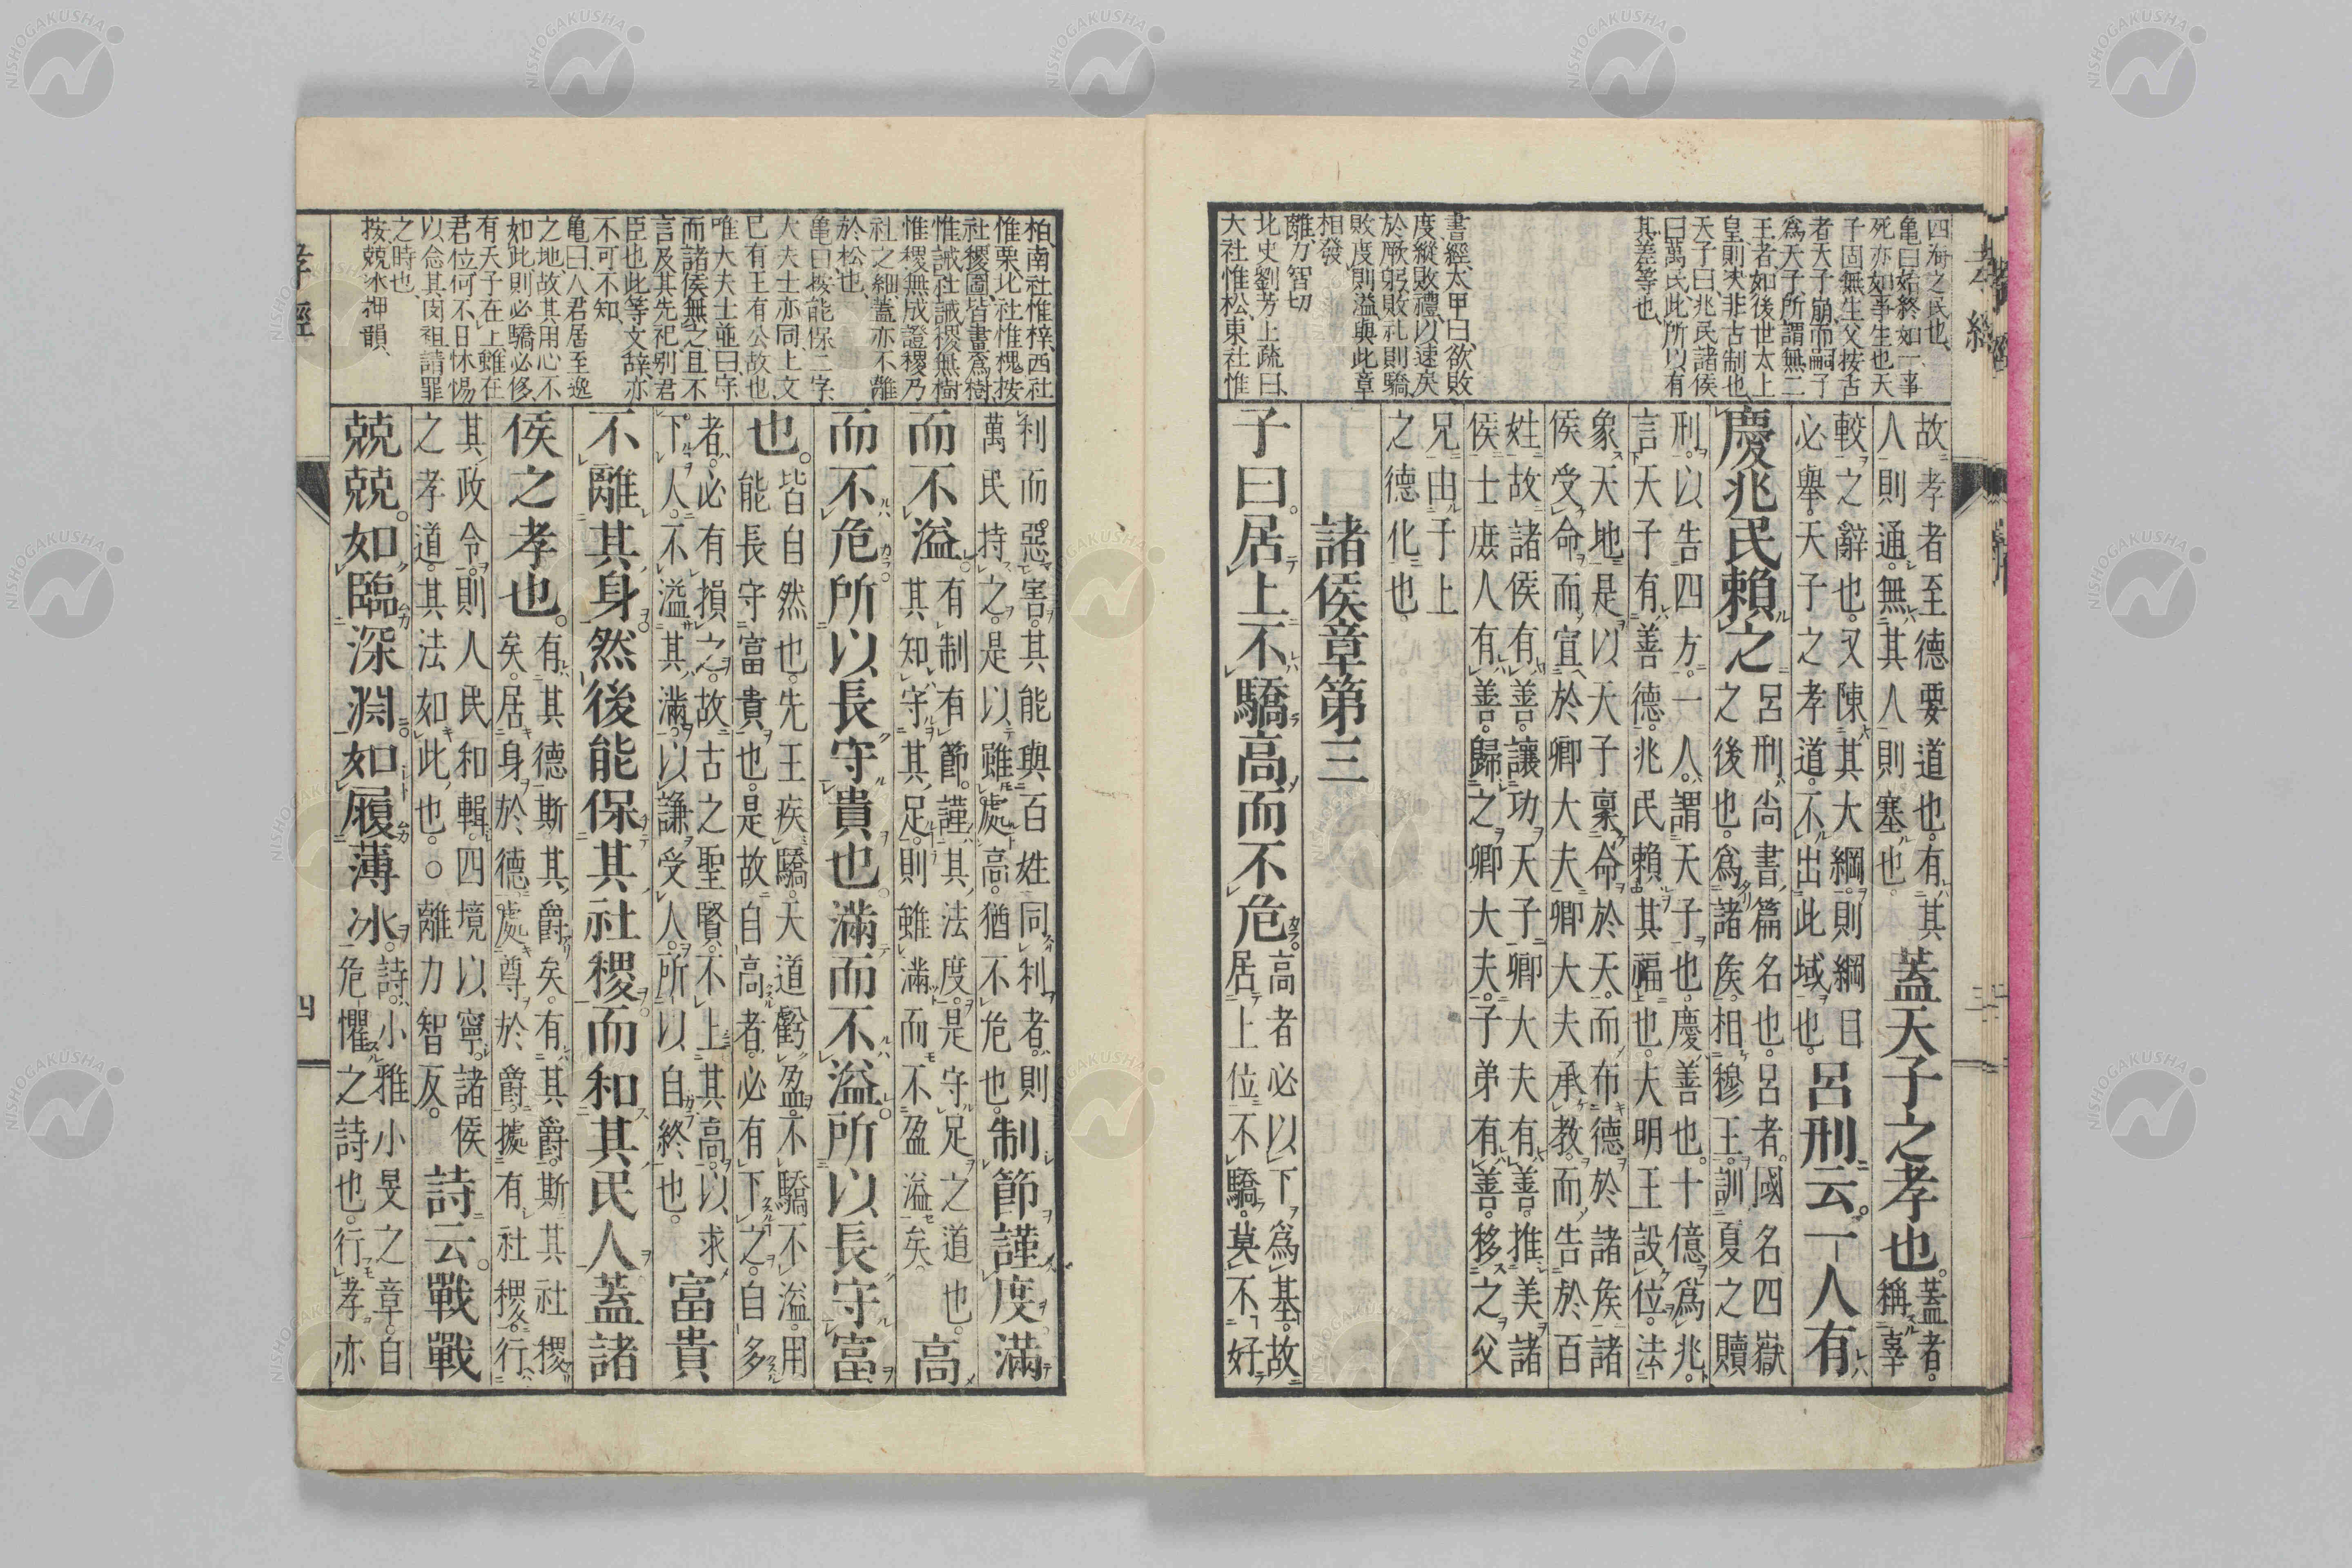 四海之民也、
亀曰始終如一事
死亦如事生也天
子固無生父按古
者天子崩而嗣子
爲天子所謂無二
王者如後世太上
皇則決非古制也
天子曰兆民諸侯
曰萬民此所以有
其差等也
書經太甲曰欲敗
度縱敗禮以速戾
於厥躬敗礼則驕
敗度則溢與此章
相發
離力智切
北史劉芳上疏曰
大社惟松東社惟
故孝者至德要道也。有其
人則通。無其人則塞也。
蓋天子之孝也。
蓋者。
稱辜
較之辭也。又陳其大綱。則綱目
必舉。天子之孝道。不出此域也。
呂刑云。一人有
慶兆民賴之
呂刑尚書篇名也。呂者。國名四嶽
之後也。爲諸侯。相穆王。訓夏之贖
刑。以告四方。一人。謂天子也。慶善也。十億爲兆。
言天子有善德。兆民賴其福也。大明王設位。法
象天地。是以天子稟命於天。而布德於諸侯諸
侯受命。而宣於卿大夫卿大夫承教。而告於百
姓故諸侯有善。讓功天子卿大夫有善。推美諸
侯士庶人有善。歸之卿大夫。子弟有善。移之父
兄由于上
之德化也。
諸侯章第三
子曰。居上不驕高而不危。
高者必以下爲基。故
居上位。不驕。莫不好
柏南社惟梓西社
惟栗北社惟槐按
社稷圖皆畫爲樹
惟誡社誡稷無樹
惟稷無成證稷乃
社之細蓋亦不離
於松也、
亀曰按能保二字
大夫士亦同上文
已有王有公故也
唯大夫士並曰守
而諸侯無之且不
言及其先祀别君
臣也此等文辞亦
不可不知
亀曰人君居至逸
之地故其用心不
如此則必驕必侈
有天子在上雖在
君位何不日休惕
以念其困祖請罪
之時也
按兢冰押韻、
利而惡害。其能與百姓同利者。則
萬民持之。是以雖處高。猶不危也。
制節謹度滿
而不溢。
有制有節。謹其法度。是守足之道也。
其知守其足。則雖滿而不盈溢矣。
高
而不危所以長守貴也滿而不溢。所以長守富
也。
皆自然也。先王疾驕。天道虧盈。不驕不溢。用
能長守富貴也。是故自高者。必有下之。自多
者。必有損之。故古之聖賢。不上其高。以求
下人。不溢其滿。以謙受人。所以自終也。
富貴
不離其身。然後能保其社稷。而和其民人蓋諸
侯之孝也。
有其德斯其爵矣。有其爵。斯其社稷
矣。居身於德。處尊於爵。據有社稷。行
其政令。則人民和輯。四境以寧。諸侯
之孝道。其法如此也。○離力智反。
詩云。戰戰
兢兢。如臨深淵。如履薄冰。
詩。小雅小旻之章。自
危懼之詩也。行孝亦
孝經
四